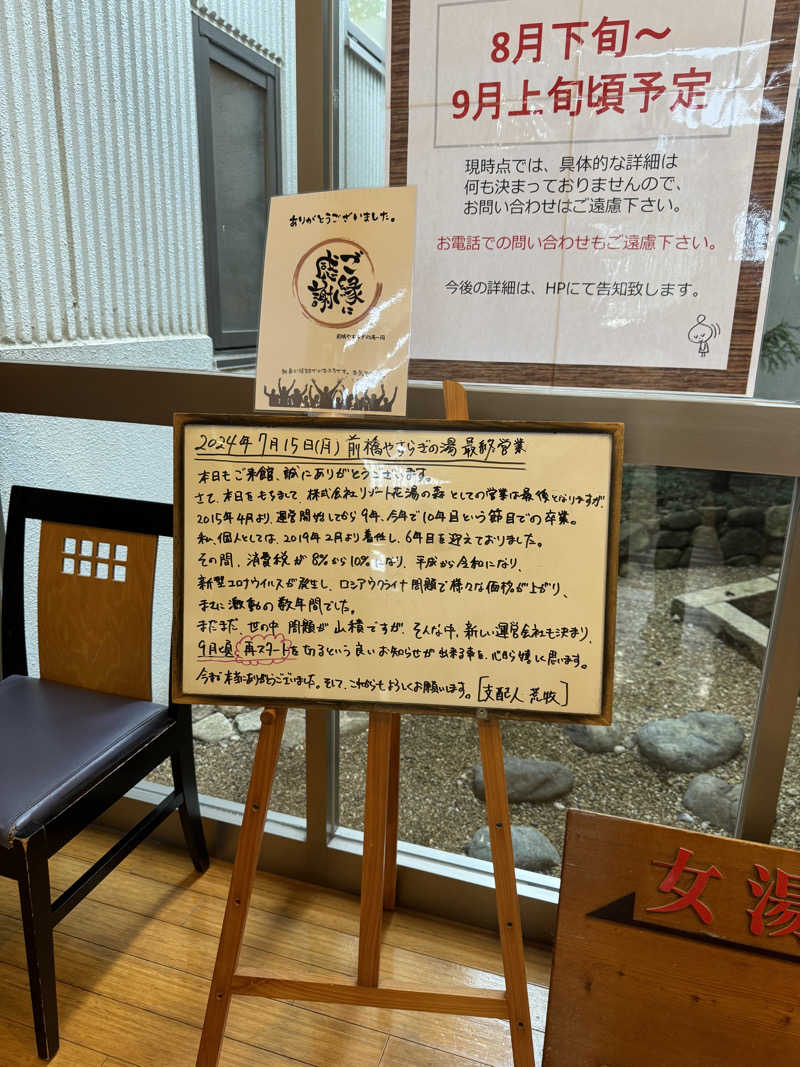 8月下旬～
9月上旬頃予定
現時点では、具体的な詳細は
何も決まっておりませんので、
お問い合わせはご遠慮下さい。
お電話での問い合わせもご遠慮下さい。
今後の詳細は、HPにて告知致します。
ありがとうございました。
ご縁に
感謝
2024年7月15日(月) 前橋やすらぎの湯 最終営業
本日もご来館、誠にありがとうございます。
さて、本日をもちまして 株式会社リゾート花湯の森としての営業は最後となりますが、
2015年4月より、運営開始してから9年、今年で10年目という節目での卒業。
私、個人としては、2019年2月より着任し、6年目を迎えておりました。
その間、消費税が8%から10%になり、平成から令和になり、
新型コロナウイルスが発生し、ロシアウクライナ問題で様々な価格が上がり、
まさに激動の数年間でした。
まだまだ、世の中 問題が山積ですが、そんな中、新しい運営会社も決まり、
9月頃 再スタートを切るという良いお知らせが出来る事を、心から嬉しく思います。
今まで本当にありがとうございました。そして、これからもよろしくお願いします。[支配人 荒牧]
女湯